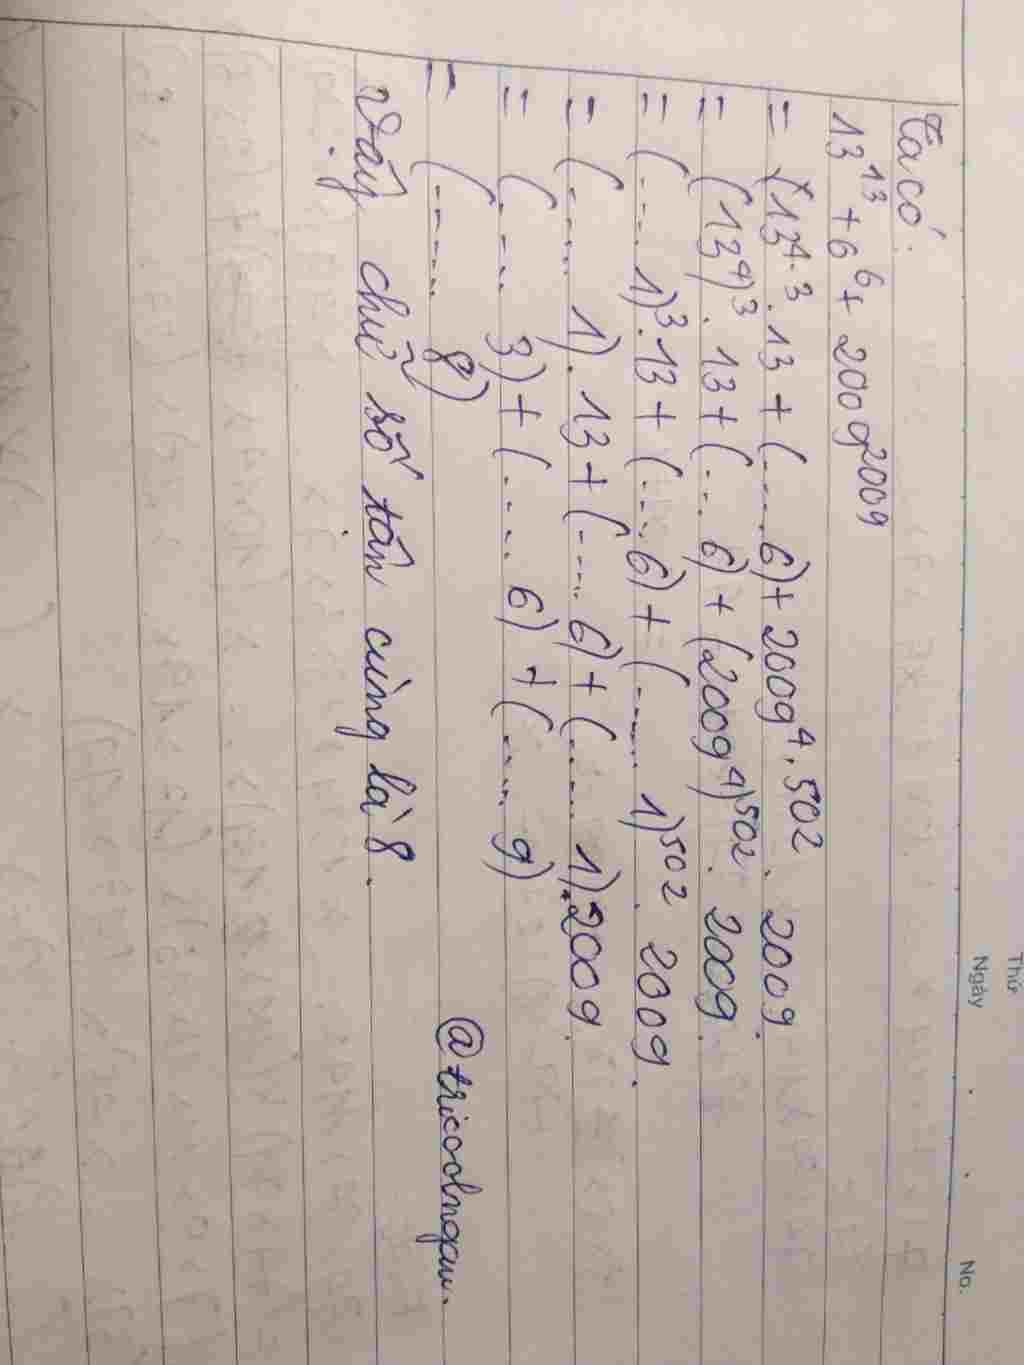 Thứ
Ngày
No.
Ta có:
13¹³ + 6⁶ + 2009²⁰⁰⁹
= (13⁴·³ . 13 + (....6) + 2009⁴·⁵⁰² . 2009.
= (13⁴)³ . 13 + (... 6) + (2009⁴)⁵⁰² . 2009
= (.... 1)³ . 13 + (.... 6) + (..... 1)⁵⁰² . 2009.
= (.... 1) . 13 + (.... 6) + (..... 1) . 2009.
= (.... 3) + (.... 6) + (..... 9)
= (..... 8)
Vậy chữ số tận cùng là 8.